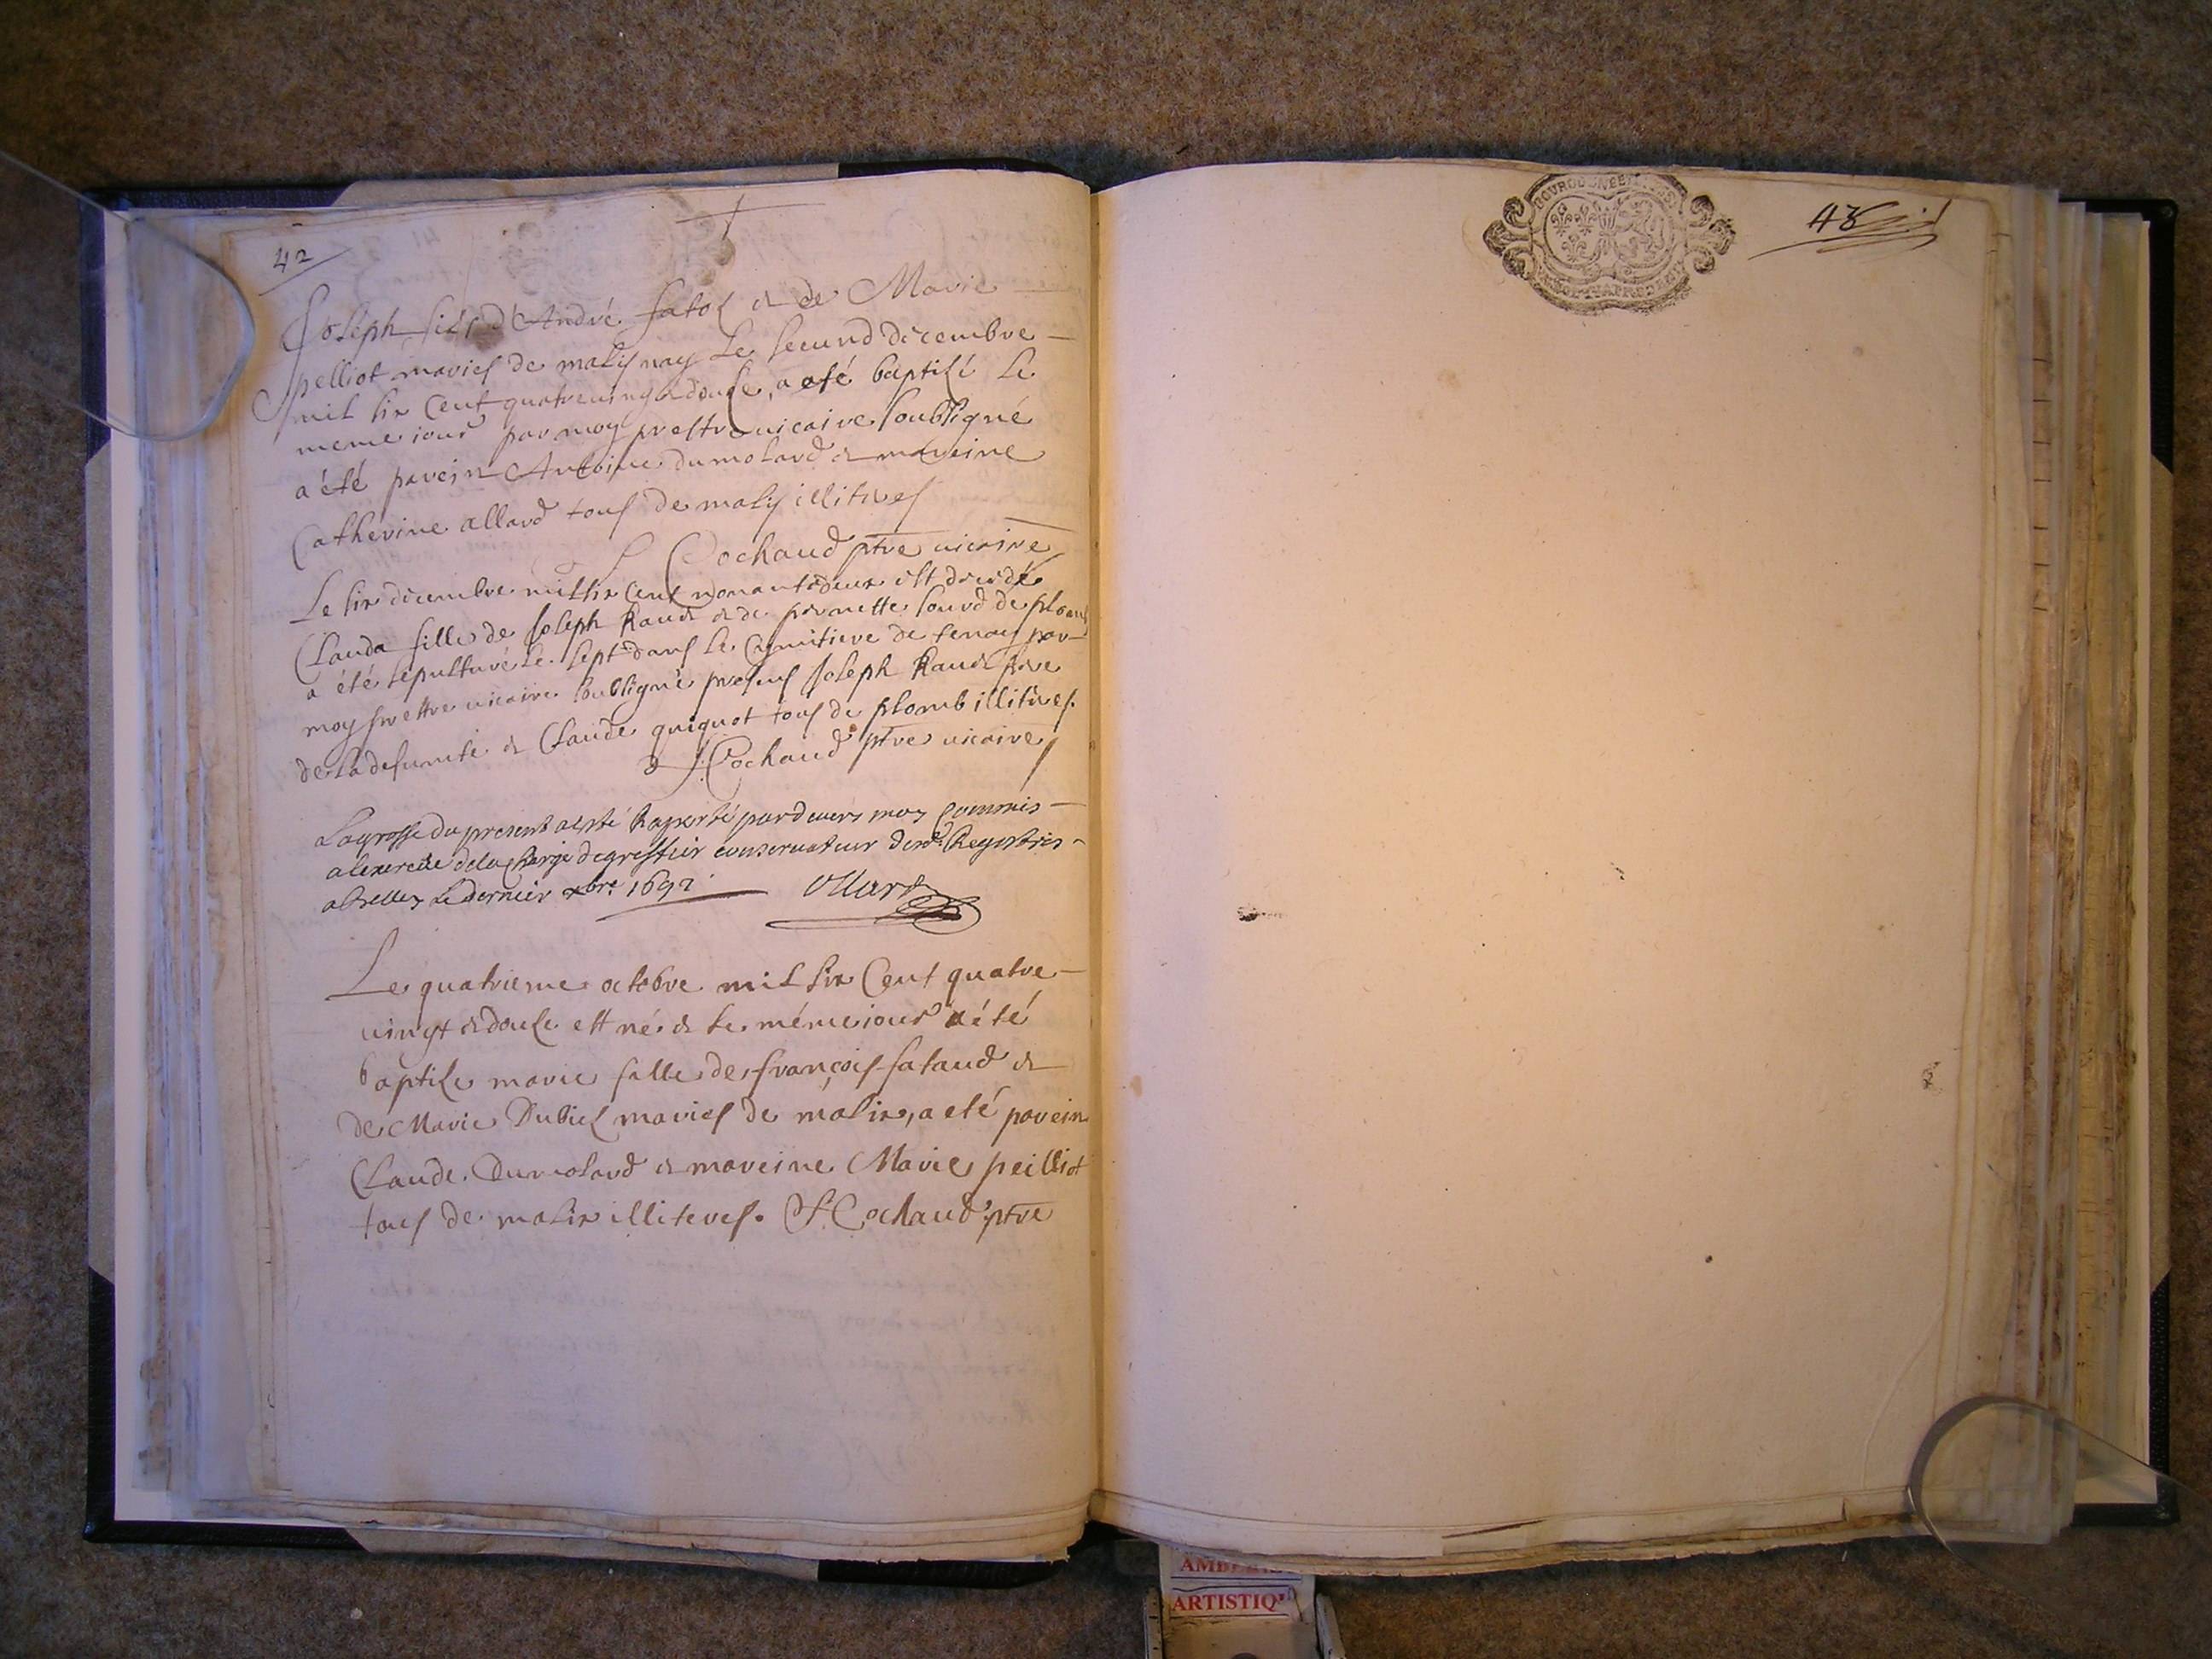 42
Joseph fils d'André fatol & de Marie
pelliot mariés de malisnay le second décembre
mil six cent quatrevingt & douse, a eté baptisé le
meme jour par moy prestre vicaire soubsigné
a été parein Antoine dumolard & mareine
Catherine allard tous de malis illitires
Cochaud ptre vicaire
Le six décembre mil six cent nonante & deux est décédé
Clauda fille de Joseph Raudt & de pernette sourd de plomb
a été sépulturé le sept dans le cymitiere de tenay par
moy prettre vicaire soubsigné présens Joseph Raudt pere
de la defuncte & Claude guiguot tous de plomb illitires.
J. Cochaud ptre vicaire
La grosse du present a esté Raportée pardevers moy Commis
a lexercice de la charge de greffier conservateur desd. Registres
a belley le dernier xbre 1692 Ollard
Le quatrieme octobre mil six cent quatre
vingt & douse est né & le méme jour a été
baptise marie fille de françois fataud &
de Marie Dubiel mariés de malix, a eté parein
Claude Dumolard & mareine Marie peilliot
tous de malix illiteres. J. Cochaud ptre
43
AMBERIEU
ARTISTIQU